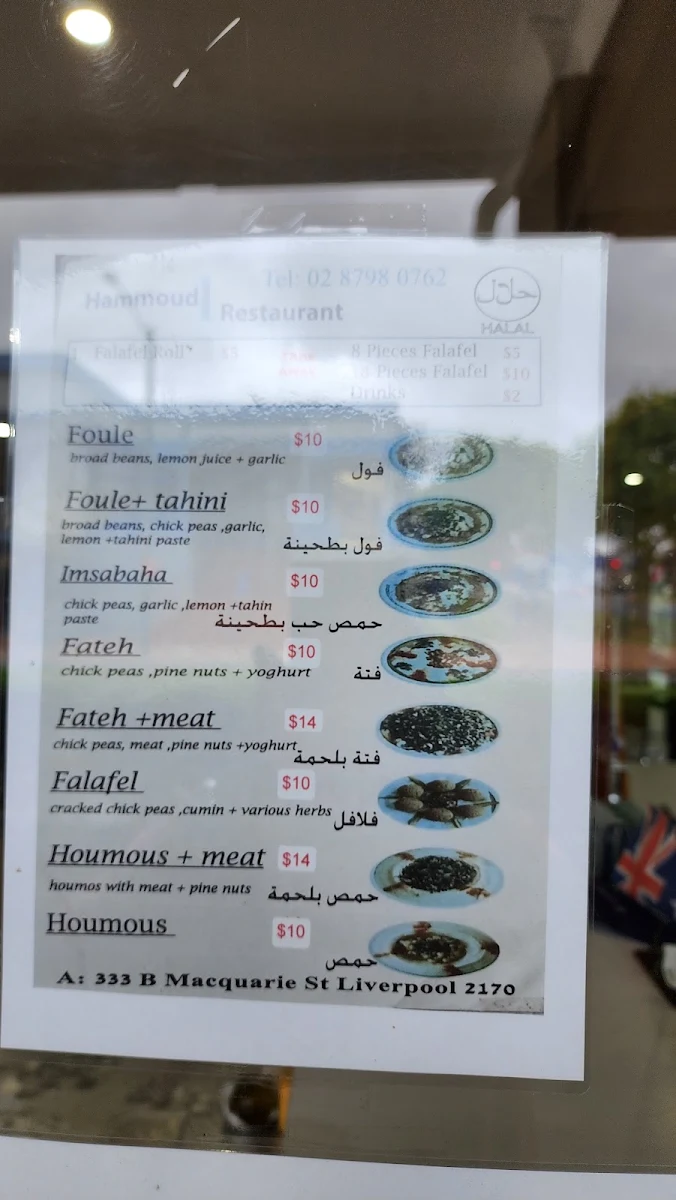 Tel: 02 8798 0762
Hammoud
Restaurant
حلال
HALAL
Falafel Roll
8 Pieces Falafel $5
Pieces Falafel $10
Drinks $2
Foule $10
broad beans, lemon juice + garlic
فول
Foule+ tahini $10
broad beans, chick peas ,garlic,
lemon +tahini paste
فول بطحينة
Imsabaha $10
chick peas, garlic ,lemon +tahin
paste
حمص حب بطحينة
Fateh $10
chick peas ,pine nuts + yoghurt
فتة
Fateh +meat $14
chick peas, meat ,pine nuts +yoghurt
فتة بلحمة
Falafel $10
cracked chick peas ,cumin + various herbs
فلافل
Houmous + meat $14
houmos with meat + pine nuts
حمص بلحمة
Houmous $10
حمص
A: 333 B Macquarie St Liverpool 2170